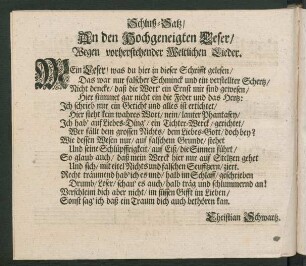 Schluß-Satz/
An den Hochgeneigten Leser/
Wegen vorherstehender Weltlichen Lieder.
MEin Leser/ was du hier in dieser Schrifft gelesen/
Das war nur falscher Schminck und ein verstellter Schertz/
Nicht dencke/ daß die Wort' ein Ernst mir sind gewesen/
Hier stimmet gar nicht ein die Feder und das Hertz:
Ich schrieb nur ein Gedicht und alles ist ertichtet/
Hier steht kein wahres Wort/ nein/ lauter Phantasey/
Ich hab' auf Liebes-Ding' ein Tichter-Werck gerichtet/
Wer fällt dem grossen Nichts/ dem Liebes-Gott/ doch bey?
Wie dessen Wesen nur/ auf falschem Grunde/ stehet
Und seine Schlüpffrigkeit/ auf Eiß/ die Sinnen führt/
So glaub auch/ daß mein Werck hier nur auf Steltzen gehet
Und sich/ mit eitel Nichts und falschen Seufftzern/ ziert.
Recht träumend hab' ich es und/ halb im Schlaff/ geschrieben
Drumb/ Leser/ schau' es auch/ halb träg und schlummernd an!
Verschleim dich aber nicht/ im süssen Gifft im Lieben/
Sonst sag' ich daß ein Traum dich auch bethören kan.
Christian Schwartz.